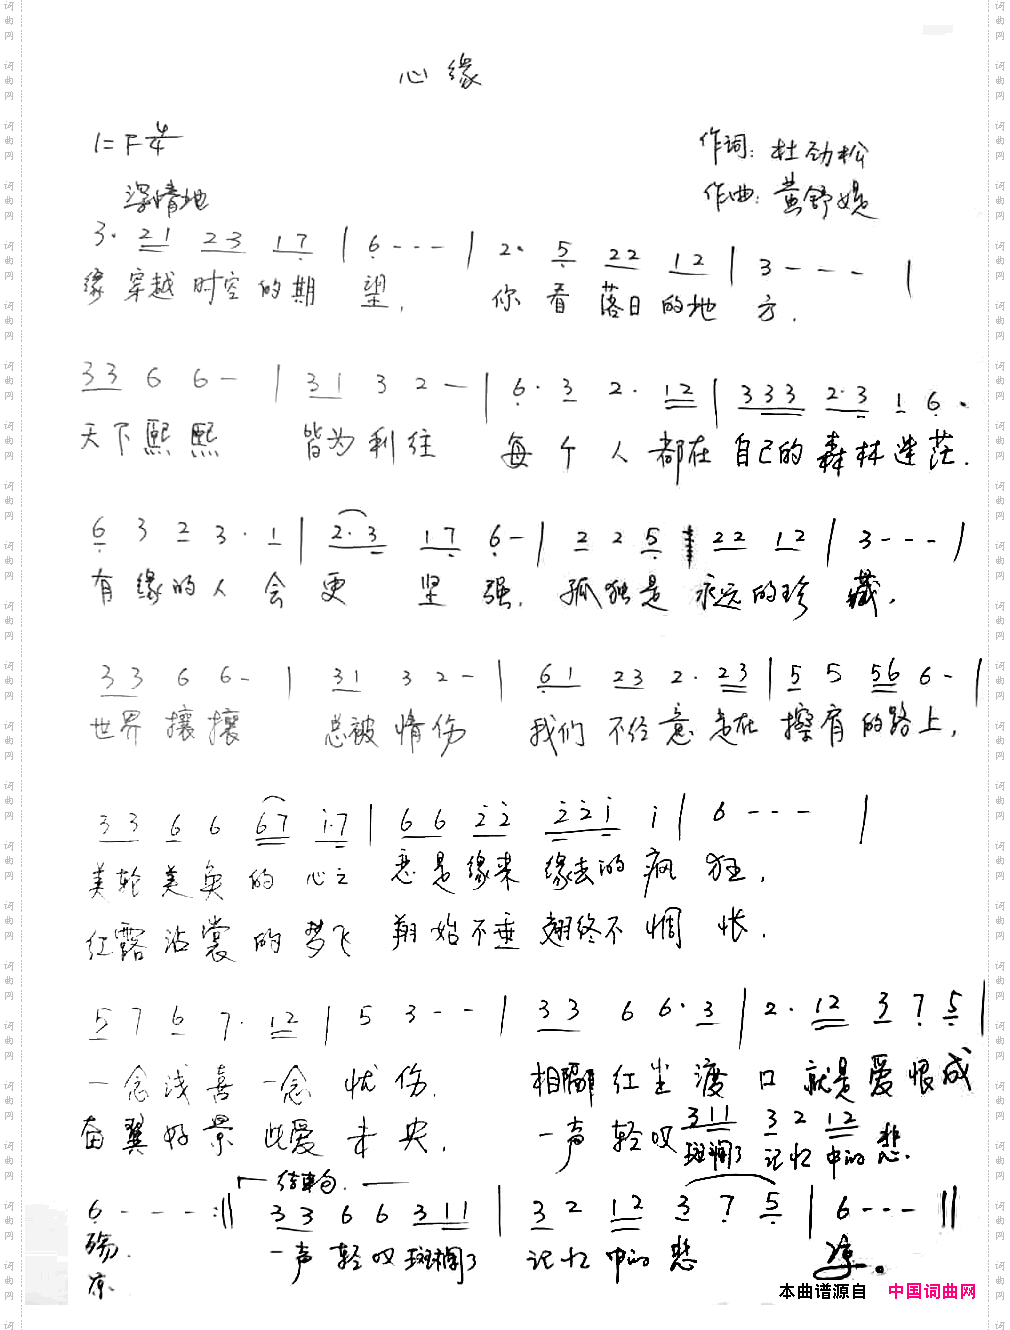 心缘
1=F 4/4
作词：杜劲松
深情地
作曲：黄舒媞
3· 21 23 17 | 6 - - - | 2· 5 22 12 | 3 - - - |
缘穿越时空的期望， 你看落日的地方．
33 6 6 - | 31 3 2 - | 6· 3 2· 12 | 333 2·3 1 6·
天下熙熙 皆为利往 每个人都在自己的森林迷茫．
6 3 2 3· 1 | 2·3 17 6 - | 2 2 5 22 12 | 3 - - - |
有缘的人会更坚强． 孤独是永远的珍藏，
33 6 6 - | 31 3 2 - | 61 23 2· 23 | 5 5 56 6 - |
世界攘攘 总被情伤 我们不经意走在擦肩的路上，
33 6 6 67 i·7 | 66 22 22i i | 6 - - - |
美轮美奂的心之恋是缘来缘去的疯狂，
红露沾裳的梦飞翔始不垂翅终不惆怅．
5 7 6 7· 12 | 5 3 - - | 33 6 6· 3 | 2· 12 3 7 5 |
一念浅喜一念忧伤． 相隔红尘渡口就是爱恨成
311 32 12
奋翼好景此爱未央． 一声轻叹斑斓了记忆中的悲．
结束句．
6 - - - :|| 33 6 6 311 | 3 2 12 3 7 5 | 6 - - - ||
殇． 一声轻叹斑斓了 记忆中的悲凉。
凉．
本曲谱源自 中国词曲网